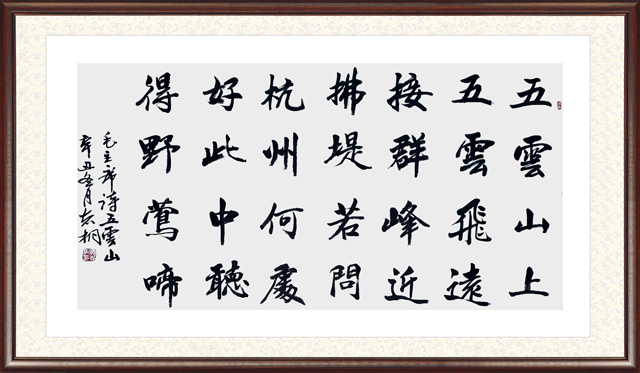 五雲山上
五雲飛遠
接群峰近
拂堤若問
杭州何處
好此中聽
得野鶯啼
毛主席詩五雲山
辛丑冬月志桐